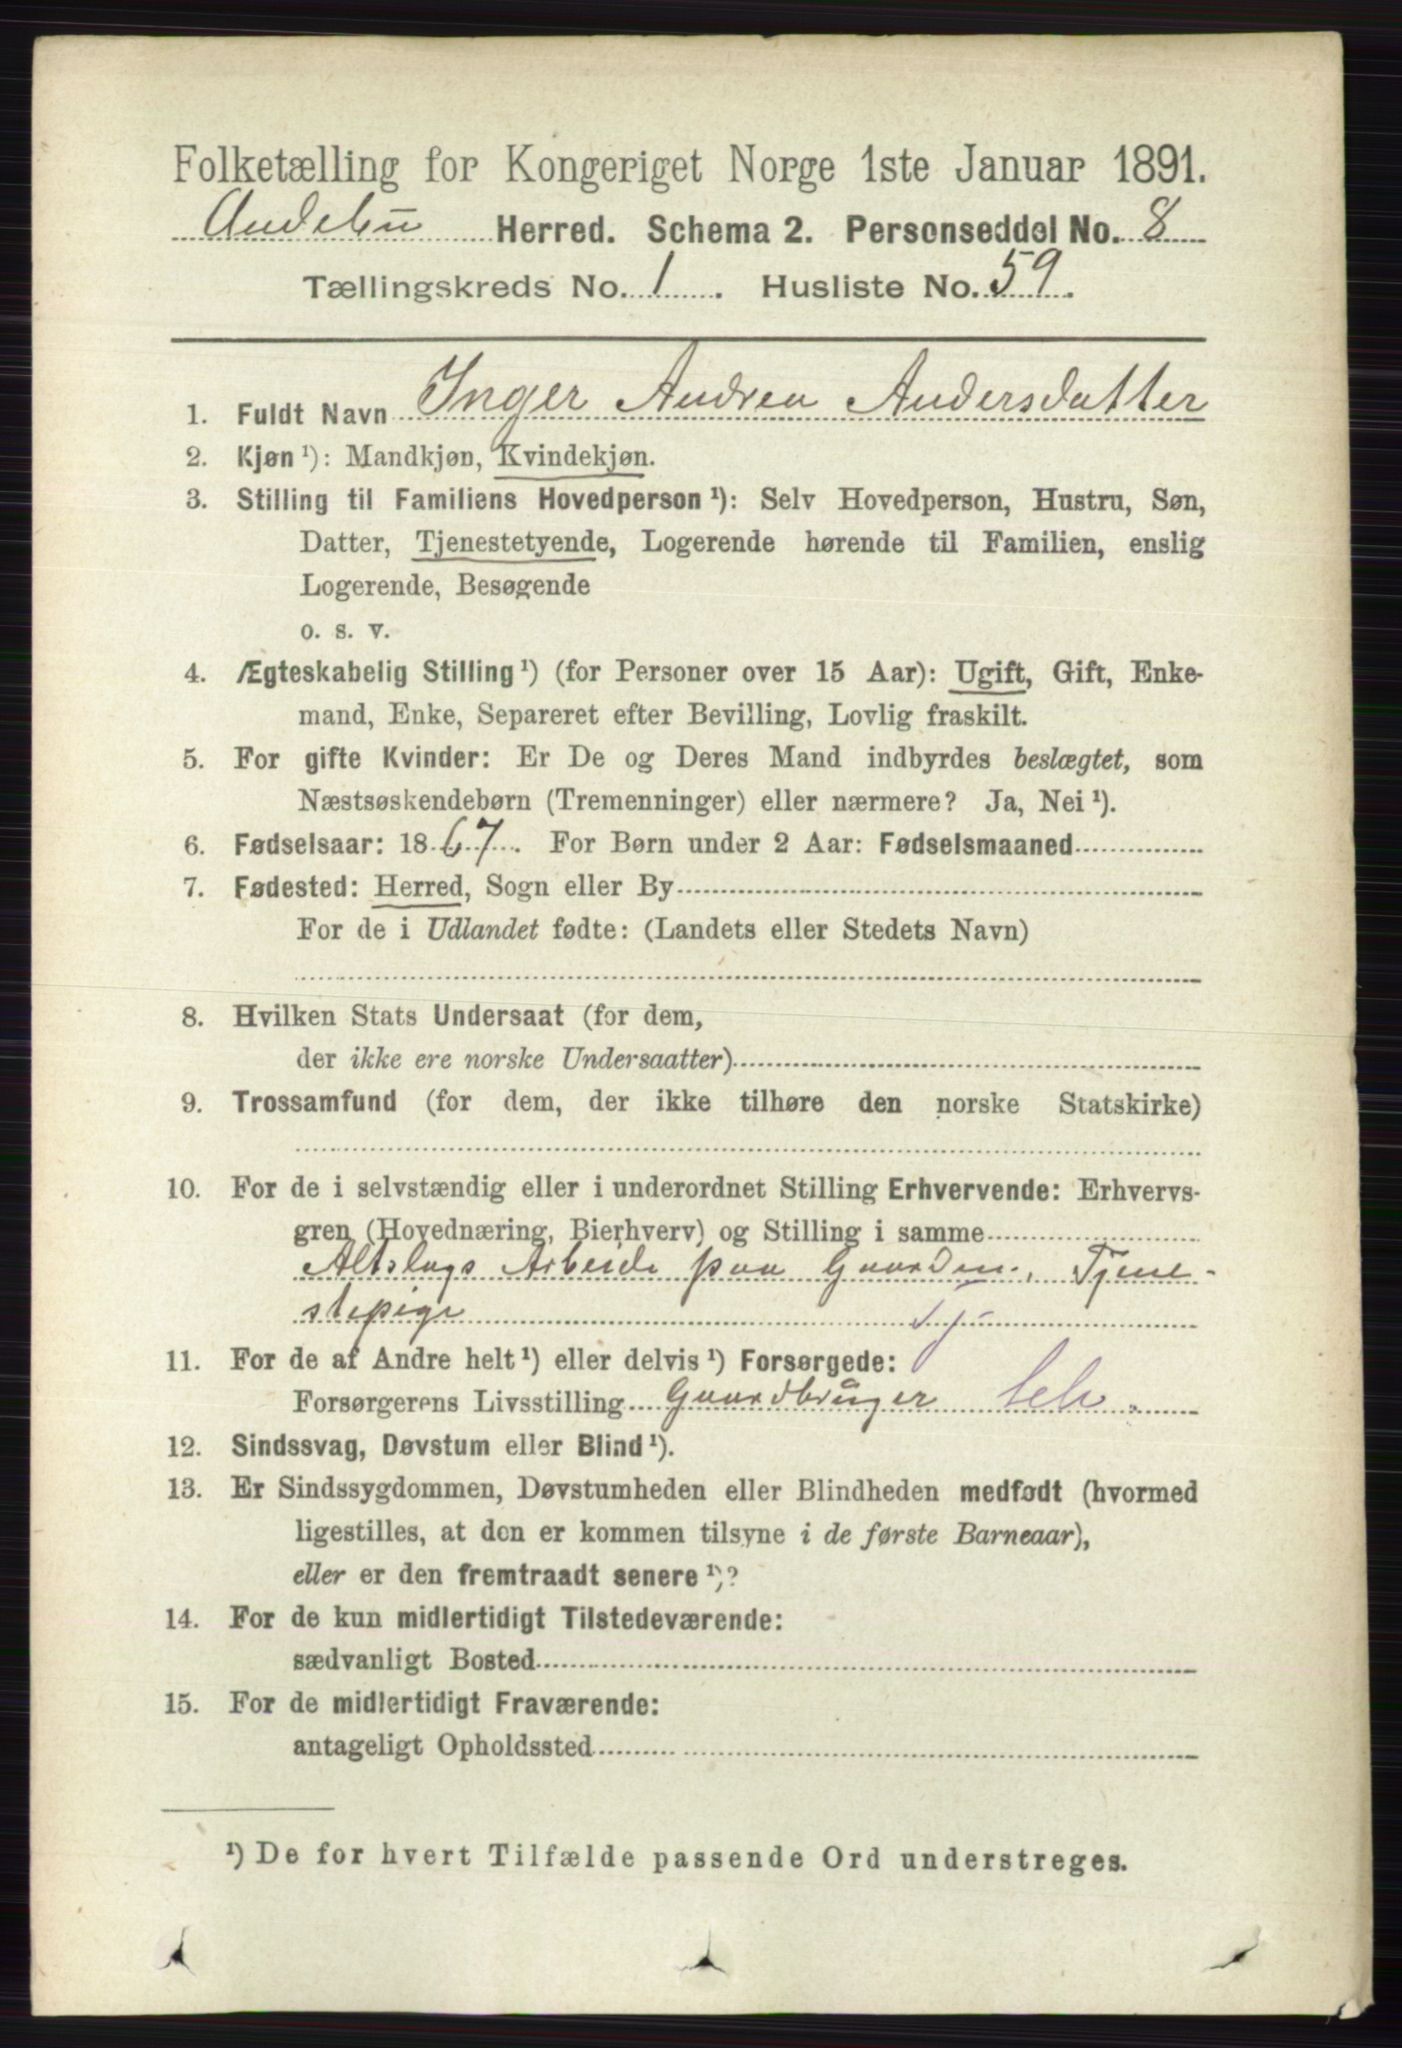 Folketælling for Kongeriget Norge 1ste Januar 1891.
Andebu Herred. Schema 2. Personseddel No. 8
Tællingskreds No. 1. Husliste No. 59.
1. Fuldt Navn Inger Andrea Andersdatter
2. Kjøn ¹): Mandkjøn, Kvindekjøn.
3. Stilling til Familiens Hovedperson ¹): Selv Hovedperson, Hustru, Søn,
Datter, Tjenestetyende, Logerende hørende til Familien, enslig
Logerende, Besøgende
o. s. v.
4. Ægteskabelig Stilling ¹) (for Personer over 15 Aar): Ugift, Gift, Enke-
mand, Enke, Separeret efter Bevilling, Lovlig fraskilt.
5. For gifte Kvinder: Er De og Deres Mand indbyrdes beslægtet, som
Næstsøskendebørn (Tremenninger) eller nærmere? Ja, Nei ¹).
6. Fødselsaar: 1867. For Børn under 2 Aar: Fødselsmaaned
7. Fødested: Herred, Sogn eller By
For de i Udlandet fødte: (Landets eller Stedets Navn)
8. Hvilken Stats Undersaat (for dem,
der ikke ere norske Undersaatter)
9. Trossamfund (for dem, der ikke tilhøre den norske Statskirke)
10. For de i selvstændig eller i underordnet Stilling Erhvervende: Erhvervs-
gren (Hovednæring, Bierhverv) og Stilling i samme
Altslags Arbeide paa Gaarden, Tjene-
stepige
11. For de af Andre helt ¹) eller delvis ¹) Forsørgede:
Forsørgerens Livsstilling Gaardbruger
12. Sindssvag, Døvstum eller Blind ¹).
13. Er Sindssygdommen, Døvstumheden eller Blindheden medfødt (hvormed
ligestilles, at den er kommen tilsyne i de første Barneaar),
eller er den fremtraadt senere ¹)?
14. For de kun midlertidigt Tilstedeværende:
sædvanligt Bosted
15. For de midlertidigt Fraværende:
antageligt Opholdssted
¹) De for hvert Tilfælde passende Ord understreges.